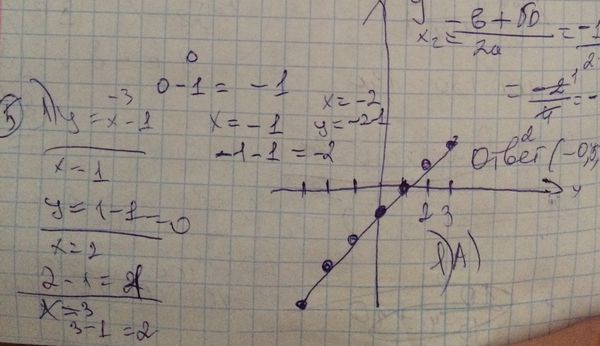 5) 1) y = x - 1
-3
x = 1
y = 1 - 1 = 0
x = 2
2 - 1 = 1
x = 3
3 - 1 = 2
0
0 - 1 = -1
x = -1
-1 - 1 = -2
x = -2
y = -2 - 1
2 3
x
1) A)
y
x₂ = -в + √D / 2a = -1
= -2 / 4 = -
Ответ (-0,5